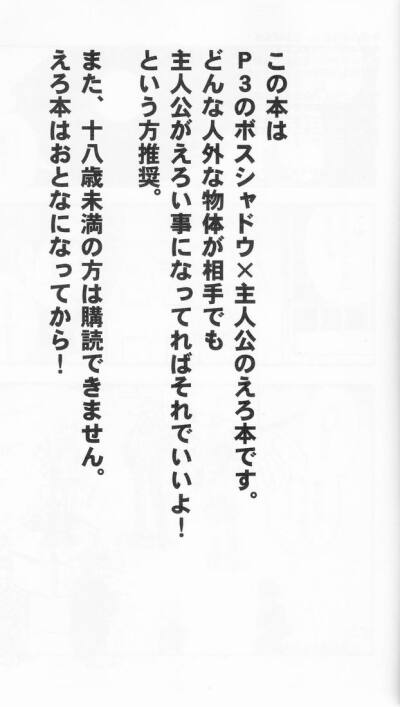 この本は
P3のボスシャドウ×主人公のえろ本です。
どんな人外な物体が相手でも
主人公がえろい事になってればそれでいいよ！
という方推奨。
また、十八歳未満の方は購読できません。
えろ本はおとなになってから！